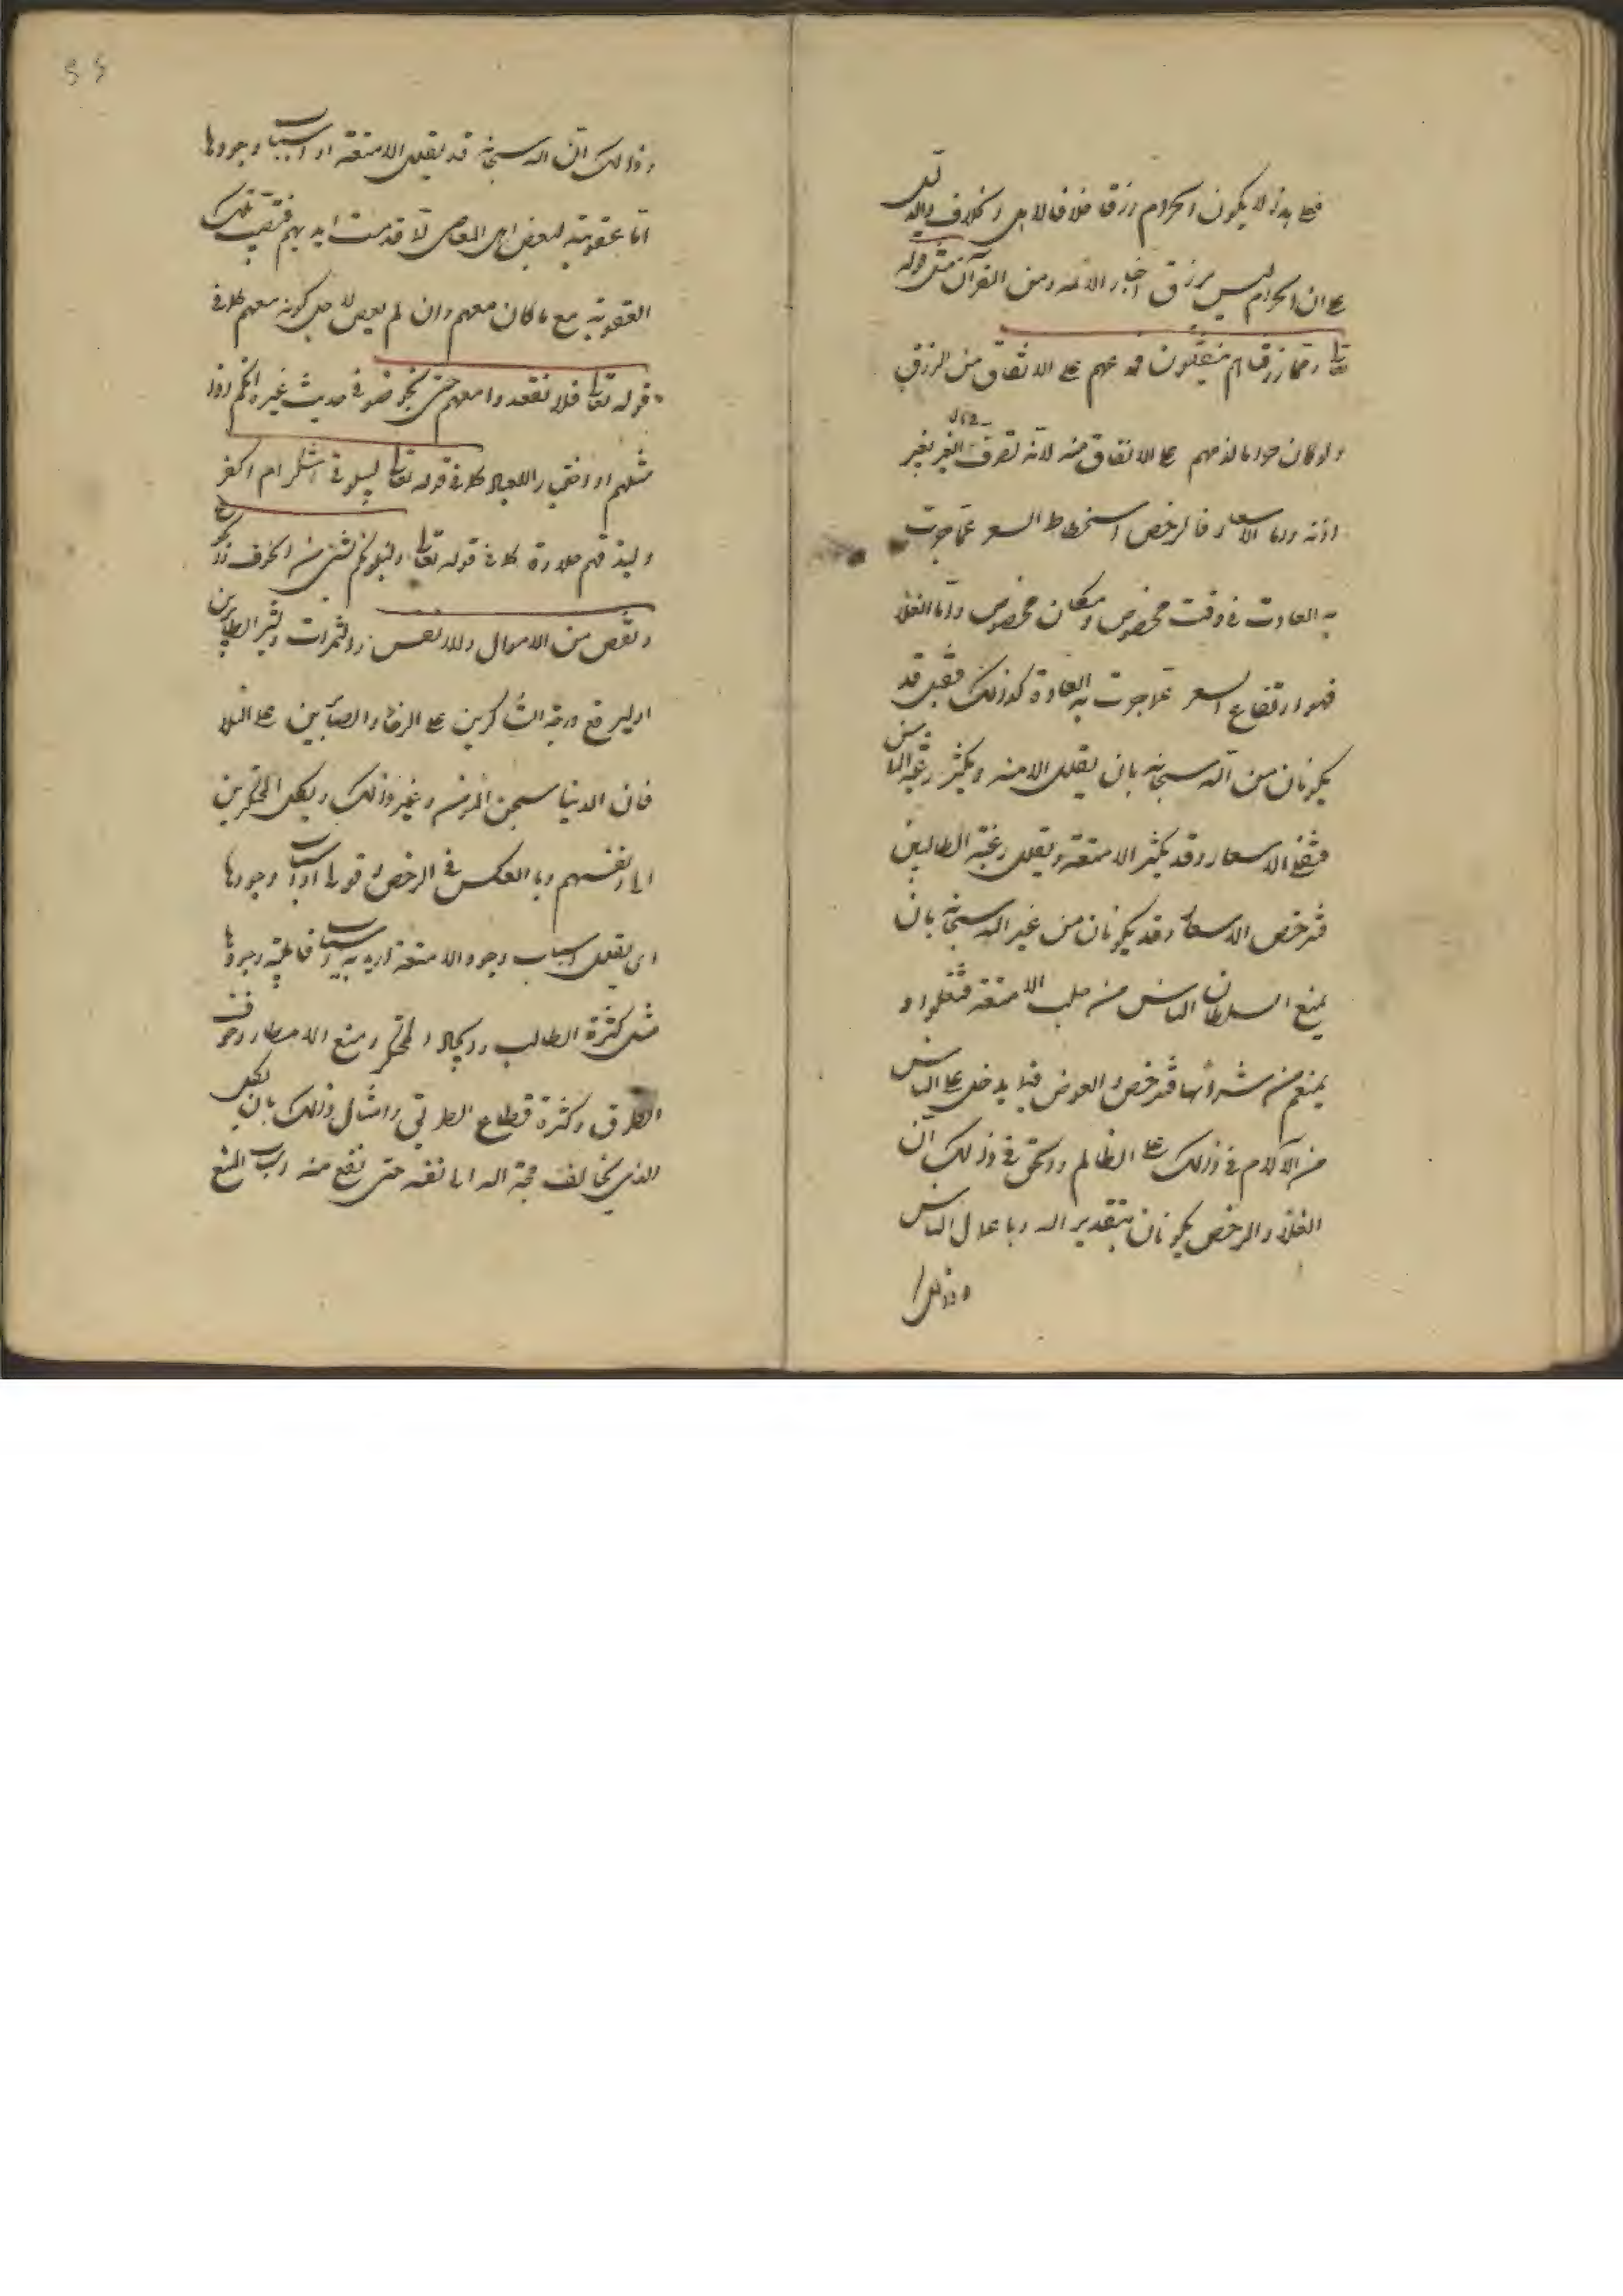 فعلى هذا لا يكون الحرام رزقا خلافا لاهل الخلاف والدليل
على ان الحرام ليس برزق اخبار الائمة ومن القرآن مثل قوله
تعالى ومما رزقناهم ينفقون مدحهم على الانفاق من الرزق
ولو كان حراما لذمهم على الانفاق منه لانه تصرف مال الغير بغير
اذنه واما الاسعار فالرخص انحطاط السعر عما جرت
به العادت في وقت مخصوص ومكان مخصوص واما الغلاء
فهو ارتفاع السعر عما جرت به العادة كذلك فقيل قد
يكونان من الله سبحانه بان يقلل الامتعه ويكثر رغبة الناس
فتغلى الاسعار وقد يكثر الامتعة ويقلل رغبة الطالبين
فترخص الاسعار وقد يكونان من غير الله سبحانه بان
يمنع السلطان الناس من جلب الامتعة فتغلوا او
يمنعهم من شرائها فترخص والعوض فيما يدخل على الناس
من الآلام في ذلك على الظالم والحق في ذلك ان
الغلاء والرخص يكونان بتقدير الله وباعمال الناس
وذلك ا
55
وذالك ان الله سبحانه قد يقلل الامتعة او اسباب وجودها
اما عقوبته لبعض اهل المعاصي لما قدمت ايديهم فتصيب تلك
العقوبته مع ما كان معهم وان لم يعص لاجل كونه معهم كما في
قوله تعالى فلا تقعدوا معهم حتى يخوضوا في حديث غيره انكم اذا
مثلهم او اختبارا للعباد كما في قوله تعالى ليبلوني ااشكر ام اكفر
وليذيقهم حلاوة كما في قوله تعالى ولنبلونكم بشئ من الخوف والجوع
ونقص من الاموال والانفس والثمرات وبشر الصابرين
او ليرفع درجة الشاكرين على الرخاء والصابرين على البلاء
فان الدنيا سجن المؤمن وغير ذلك ويكل المحتكرين
الى انفسهم وبالعكس في الرخص وقولى او اسباب وجودها
اى يقلل اسباب وجود الامتعة اريد به اسباب قابلية وجودها
مثل كثرة الطالب والمحتكر ومنع الامطار وخوف
الطرق وكثرة قطاع الطريق وامثال ذلك بان يكل
الذى يخالف محبة الله الى نفسه حتى تقع منه اسباب المنع